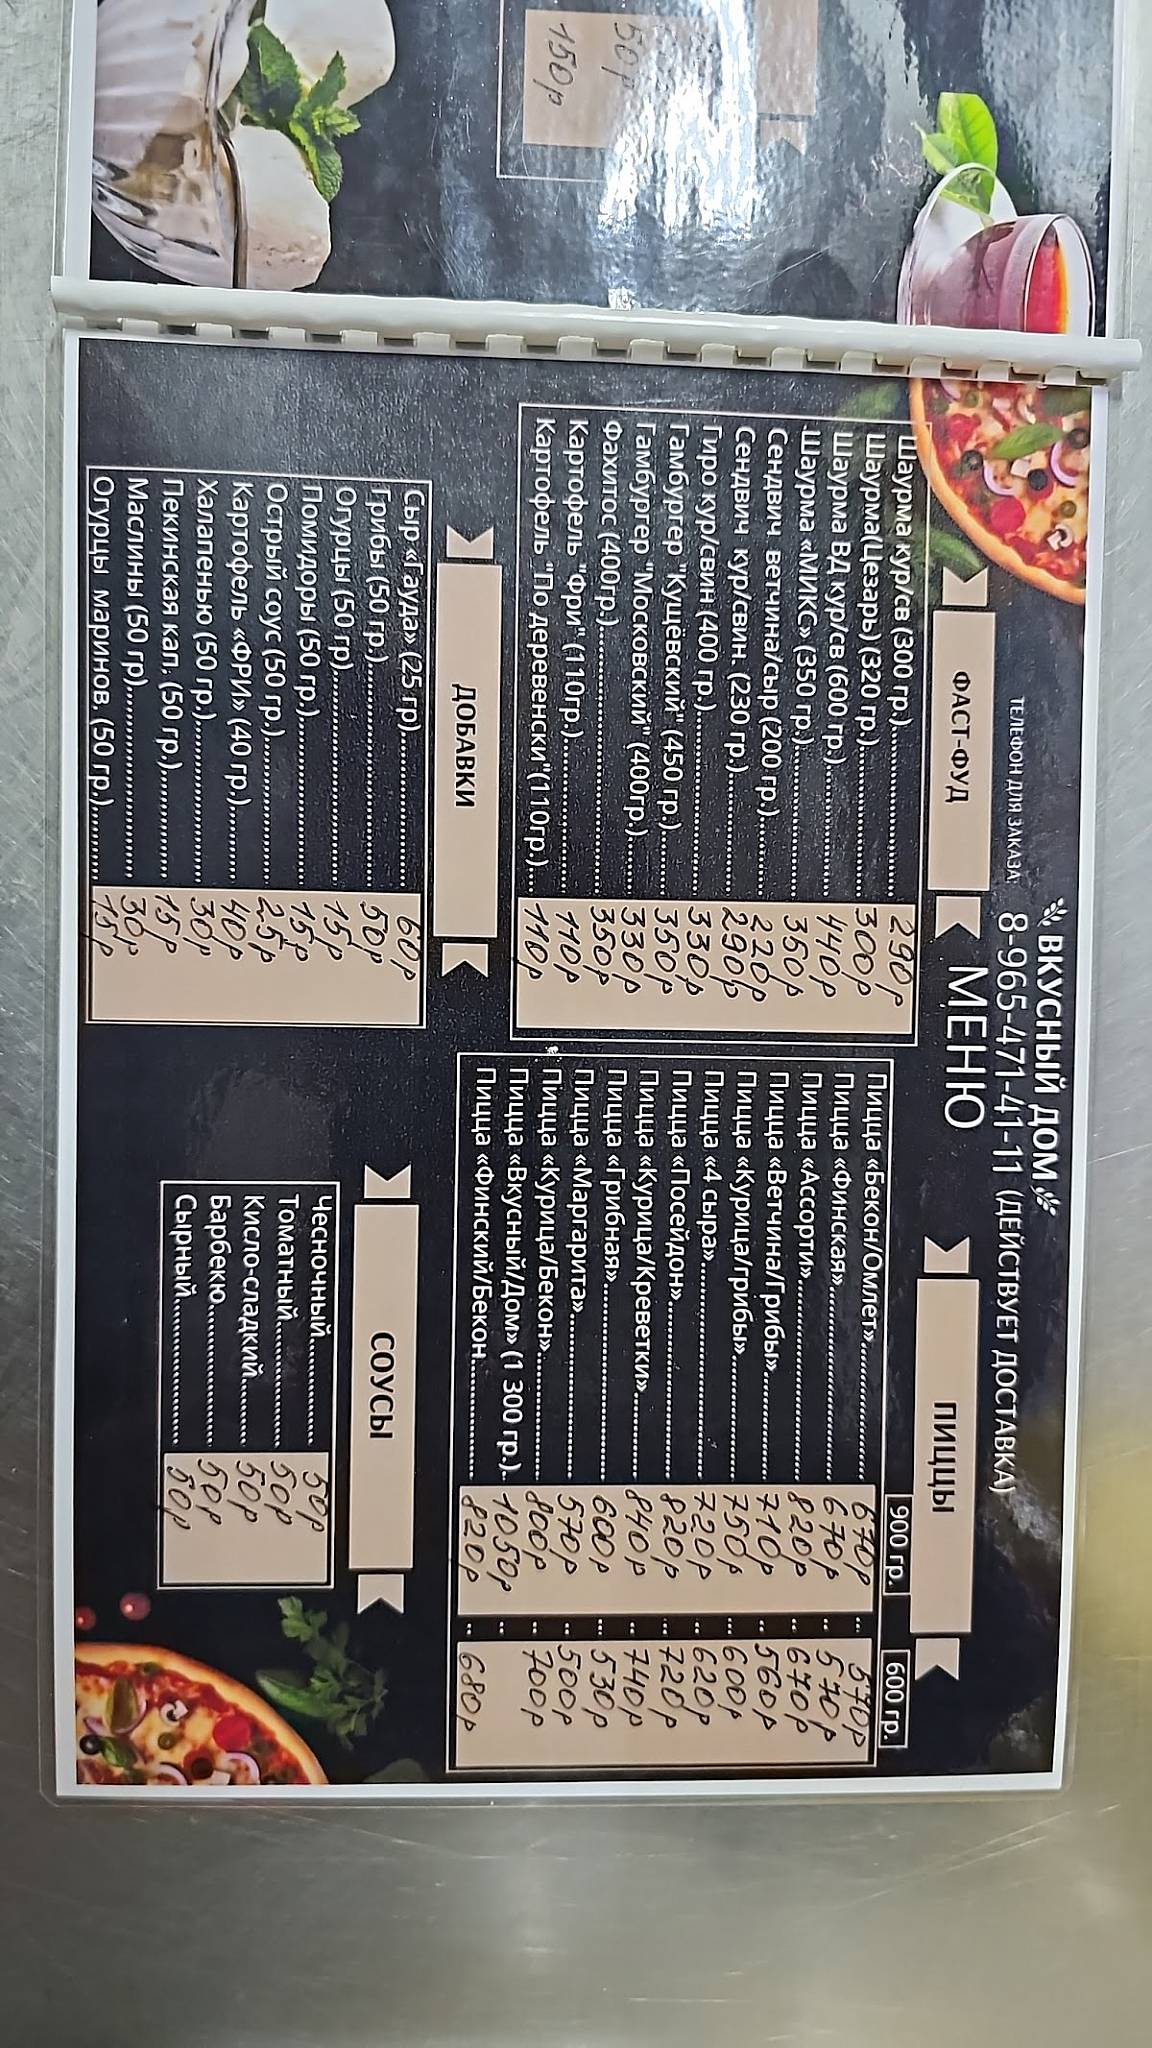 50р
150р
ВКУСНЫЙ ДОМ
ТЕЛЕФОН ДЛЯ ЗАКАЗА: 8-965-471-41-11 (ДЕЙСТВУЕТ ДОСТАВКА)
МЕНЮ
ФАСТ-ФУД
Шаурма кур/св (300 гр.) 290р
Шаурма(Цезарь) (320 гр.) 300р
Шаурма ВД кур/св (600 гр.) 440р
Шаурма «МИКС» (350 гр.) 350р
Сендвич ветчина/сыр (200 гр.) 220р
Сендвич кур/свин. (230 гр.) 290р
Гиро кур/свин (400 гр.) 330р
Гамбургер "Кущёвский" (450 гр.) 350р
Гамбургер "Московский" (400гр.) 330р
Фахитос (400гр.) 350р
Картофель "Фри" (110гр.) 110р
Картофель "По деревенски"(110гр.) 110р
ДОБАВКИ
Сыр «Гауда» (25 гр) 60р
Грибы (50 гр.) 50р
Огурцы (50 гр) 15р
Помидоры (50 гр.) 15р
Острый соус (50 гр.) 25р
Картофель «ФРИ» (40 гр.) 40р
Халапенью (50 гр.) 30р
Пекинская кап. (50 гр.) 15р
Маслины (50 гр) 30р
Огурцы маринов. (50 гр.) 15р
ПИЦЦЫ
900 гр. 600 гр.
Пицца «Бекон/Омлет» 670р 570р
Пицца «Финская» 670р 570р
Пицца «Ассорти» 820р 670р
Пицца «Ветчина/Грибы» 710р 560р
Пицца «Курица/грибы» 750р 600р
Пицца «4 сыра» 720р 620р
Пицца «Посейдон» 820р 720р
Пицца «Курица/Креветки» 840р 740р
Пицца «Грибная» 600р 530р
Пицца «Маргарита» 570р 500р
Пицца «Курица/Бекон» 800р 700р
Пицца «Вкусный/Дом» (1 300 гр.) 1050р
Пицца «Финский/Бекон 820р 680р
СОУСЫ
Чесночный 50р
Томатный 50р
Кисло-сладкий 50р
Барбекю 50р
Сырный 50р